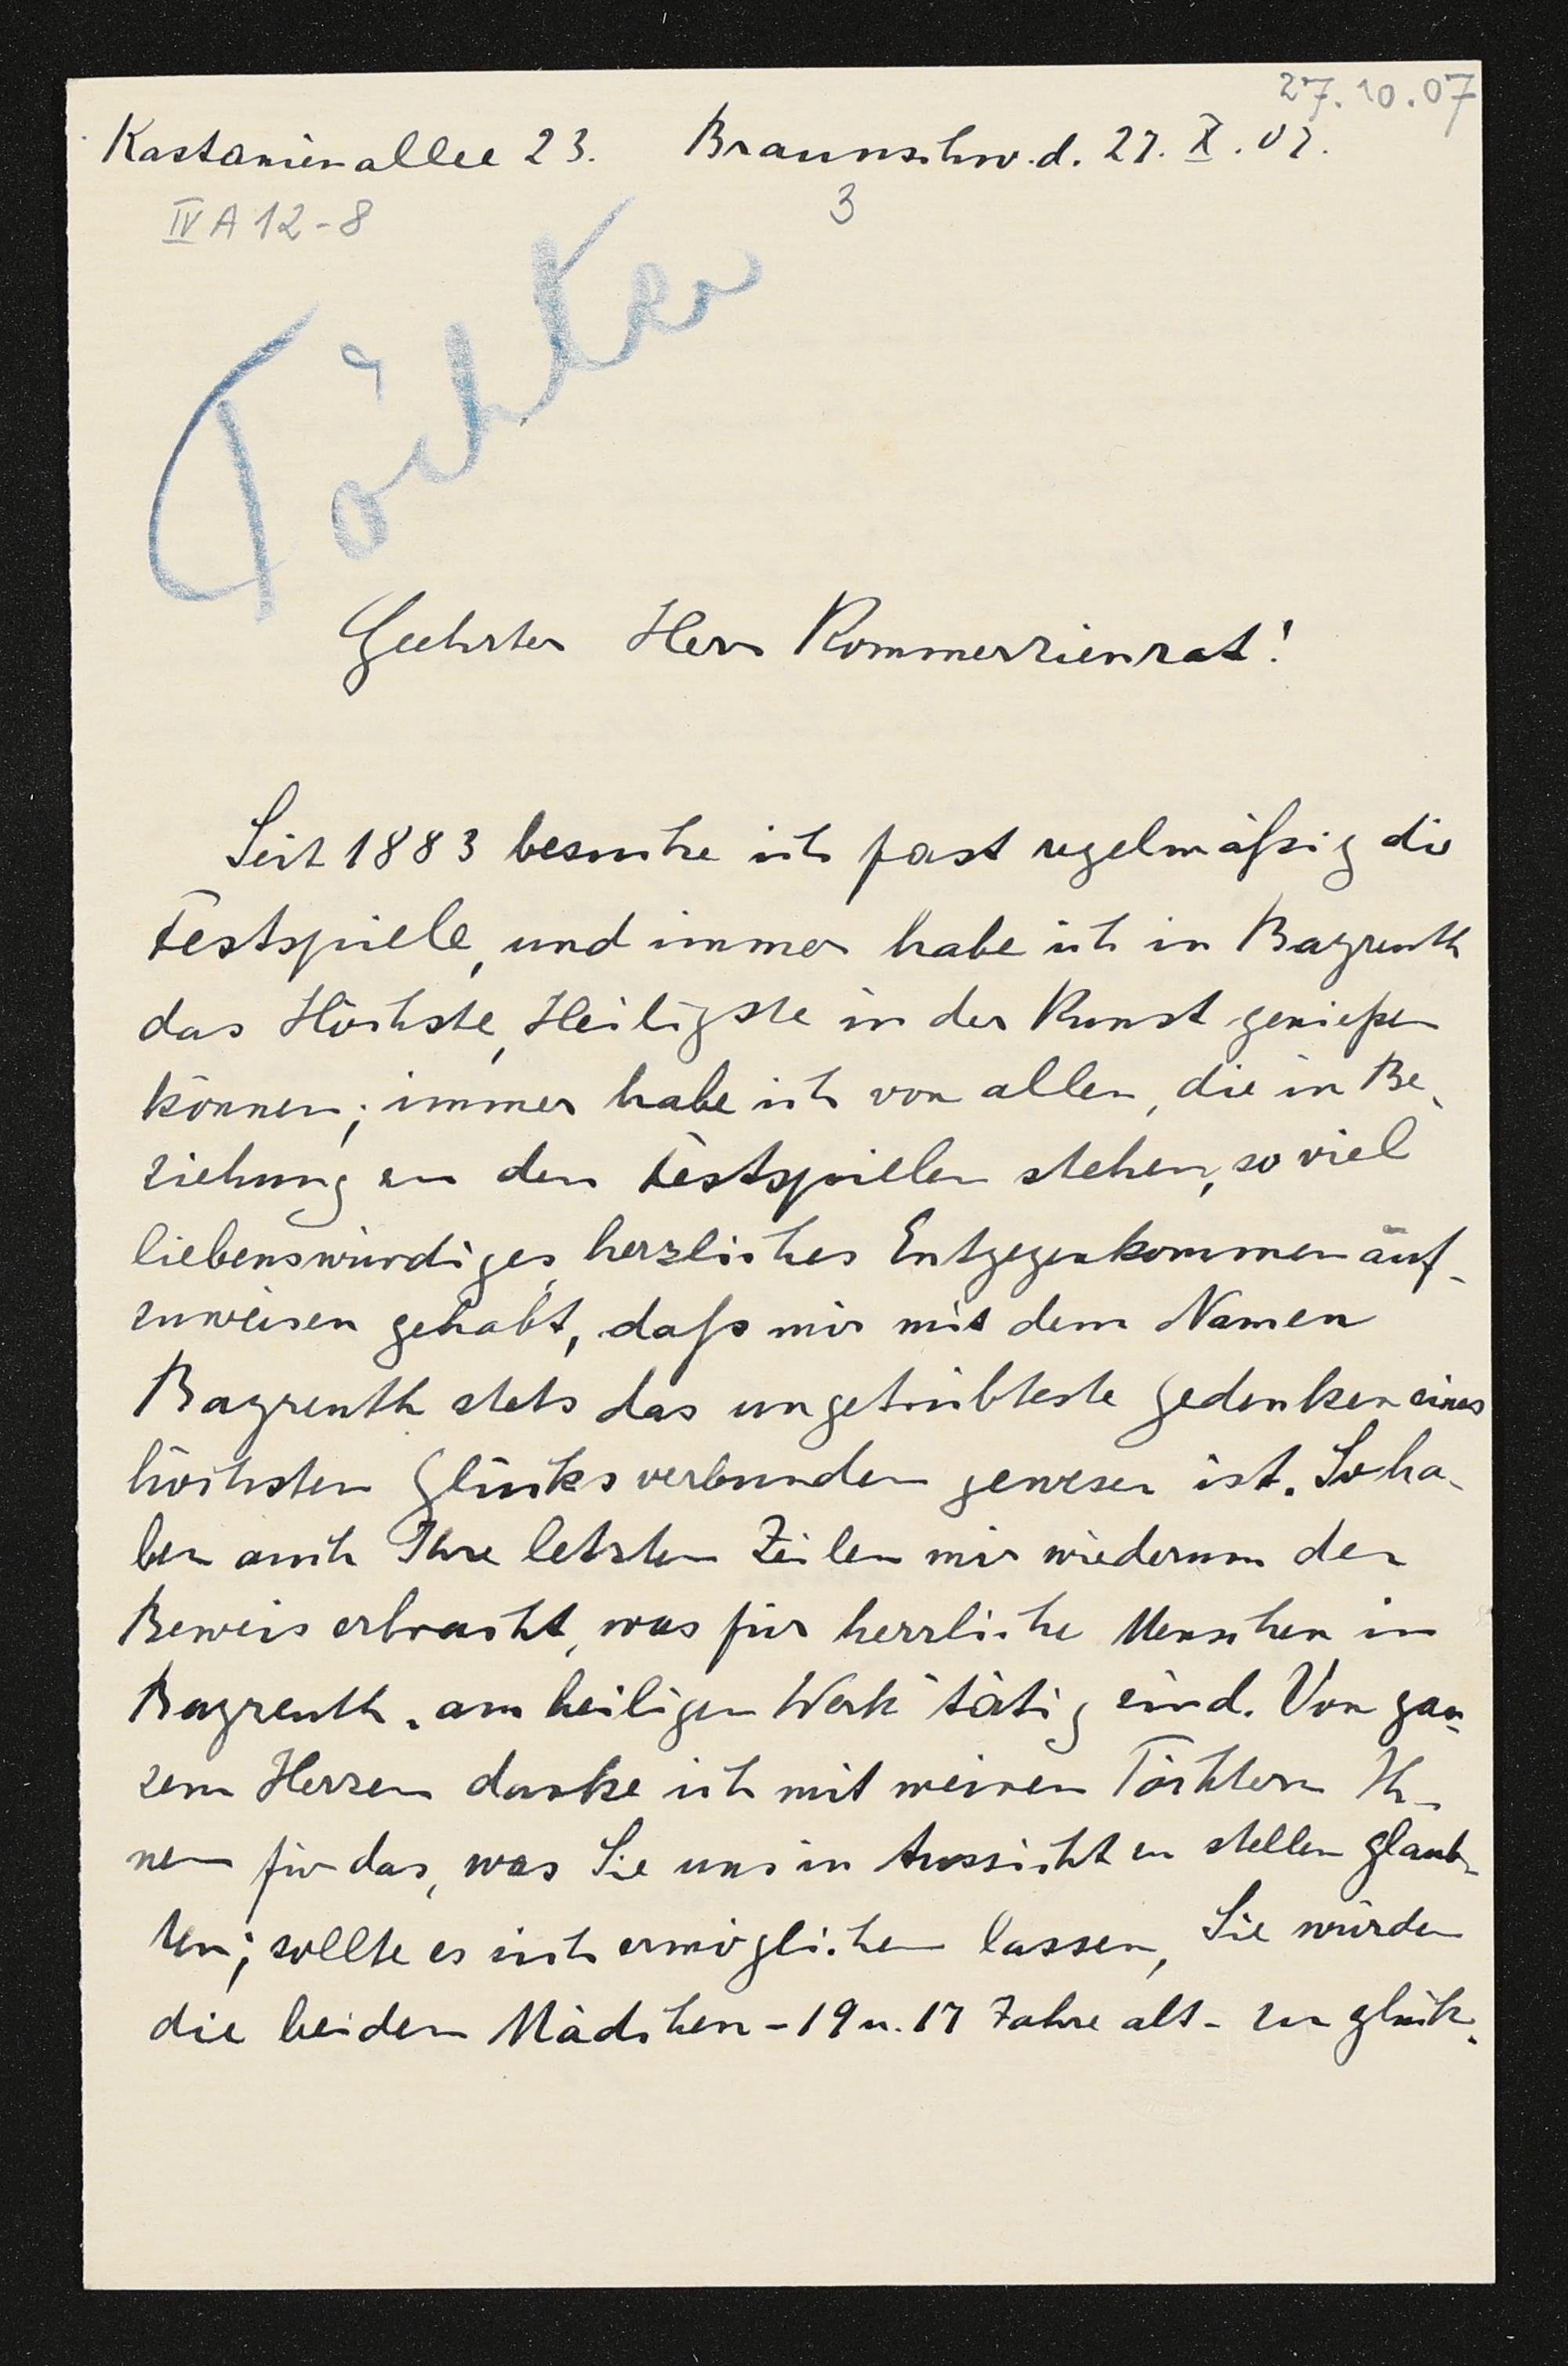 27.10.07
Kastanienallee 23. Braunschw. d. 27. X. 07.
IV A 12-8 3
Töchter
Geehrter Herr Kommerzienrat!
Seit 1883 besuche ich fast regelmäßig die
Festspiele, und immer habe ich in Bayreuth
das Höchste, Heiligste in der Kunst genießen
können; immer habe ich von allen, die in Be-
ziehung zu den Festspielen stehen, so viel
liebenswürdiges, herzliches Entgegenkommen auf-
zuweisen gehabt, daß mir mit dem Namen
Bayreuth stets das ungetrübteste Gedenken eines
höchsten Glücks verbunden gewesen ist. So ha-
ben auch Ihre letzten Zeilen mir wiederum den
Beweis erbracht, was für herrliche Menschen in
Bayreuth „am heiligen Werk“ tätig sind. Von gan-
zem Herzen danke ich mit meinen Töchtern Ih-
nen für das, was Sie uns in Aussicht zu stellen glaub-
ten; sollte es sich ermöglichen lassen, Sie würden
die beiden Mädchen - 19 u. 17 Jahre alt - zu glück-